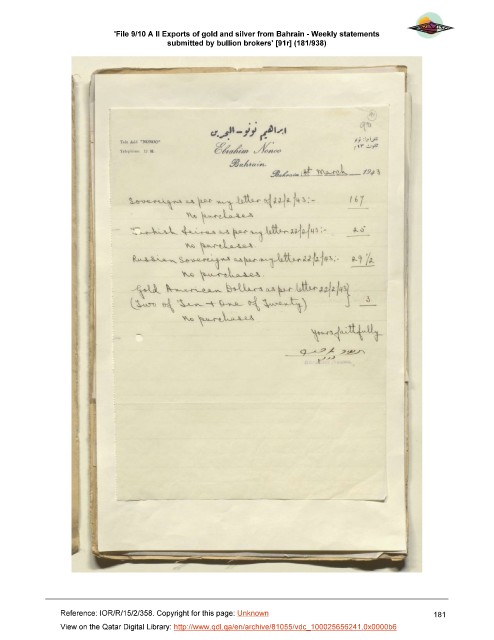 'File 9/10 A II Exports of gold and silver from Bahrain - Weekly statements
submitted by bullion brokers' [91r] (181/938)
ابراهيم نونو - البحرين
Ebrahim Nonoo
Bahrain
Bahrain 1st March 1943
Sovereigns as per my letter of 22/2/43:- 167
No purchases
Turkish Lairas as per my letter 22/2/43:- 25
No purchases.
Russian Sovereigns as per my letter 22/2/43:- 29 1/2
No purchases.
Gold American Dollars as per letter 22/2/43
(Two of Ten + One of Twenty) 3
No purchases
Yours faithfully
Reference: IOR/R/15/2/358. Copyright for this page: Unknown
181
View on the Qatar Digital Library: http://www.qdl.qa/en/archive/81055/vdc_100025656241.0x0000b6